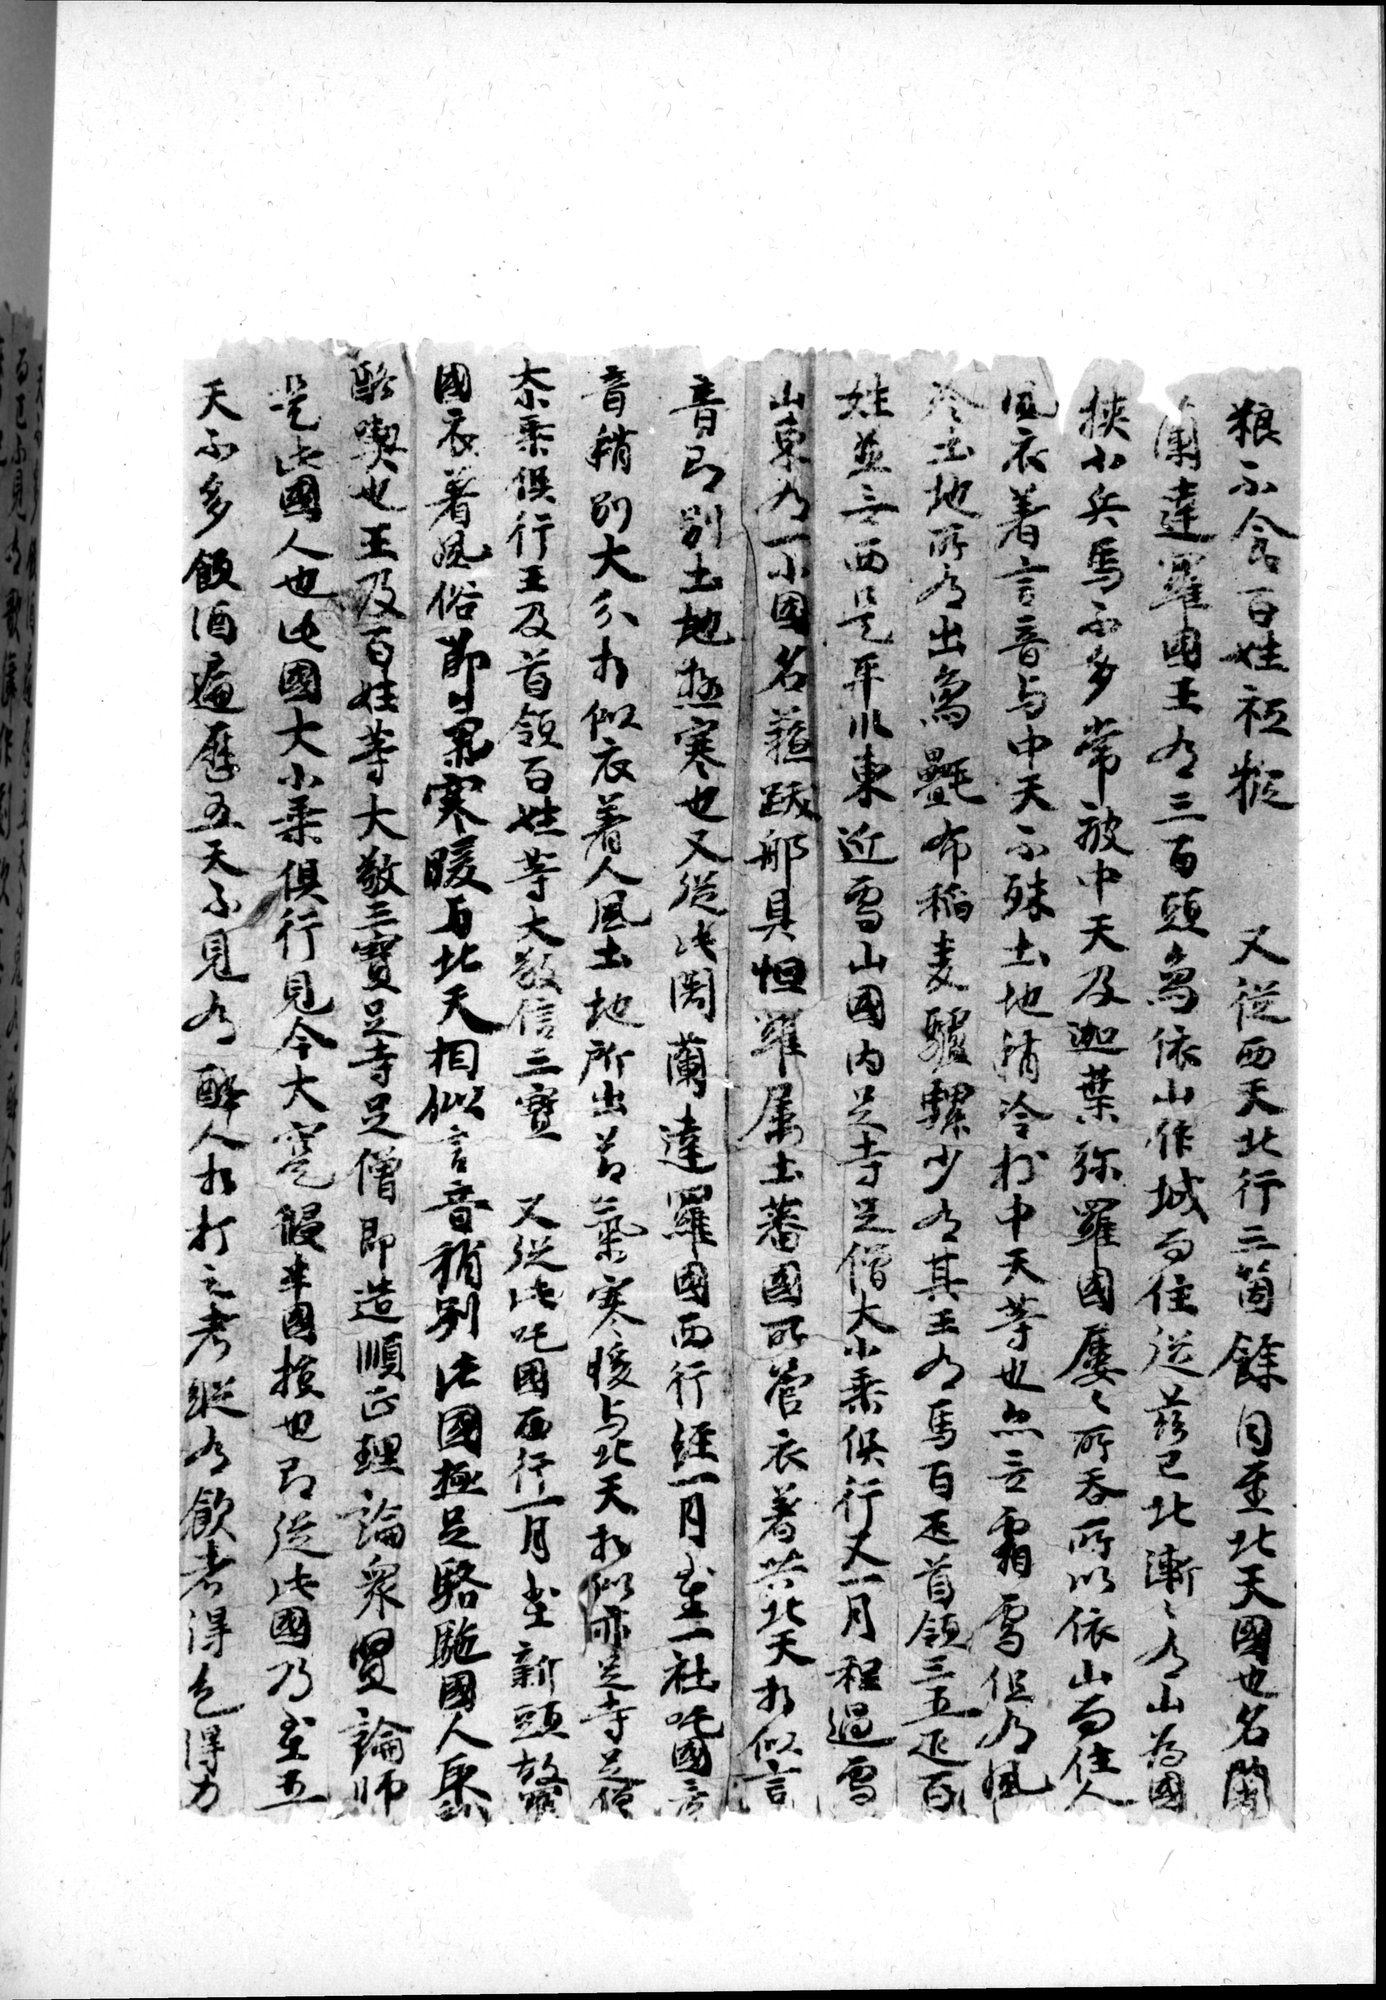 粮不食百姓祗擬　又從西天北行三箇餘月至北天國也名闍
蘭達羅國王有三百頭烏依山作城而住從茲已北漸〻有山為國
狹小兵馬不多常被中天及迦葉弥羅國屢〻所吞所以依山而住人
風衣著言音与中天不殊土地稍冷於中天等也亦無霜雪但有風
冷土地所有出烏氎布稻麦驢騾少有其王有馬百疋首領三五疋百
姓並無西是平川東近雪山國內足寺足僧大小乘俱行又一月程過雪
山東有一小國名蘇跋那具怛羅属土蕃國所管衣著共北天相似言
音即別土地極寒也又從此闍蘭達羅國西行經一月至一社吒國言
音稍別大分相似衣著人風土地所出節氣寒暖与北天相似亦足寺足僧
大小乘俱行王及首領百姓等大敬信三寶　又從此吒國西行一月至新頭故羅
國衣著風俗節氣寒暖与北天相似言音稍別此國極足駱駞國人取乳
酪喫也王及百姓等大敬三寶足寺足僧即造順正理論衆賢論師
是此國人也此國大小乘俱行見今大寔侵半國損也即從此國乃至五
天不多飲酒遍歷五天不見有醉人相打之者縱有飲者得色得力